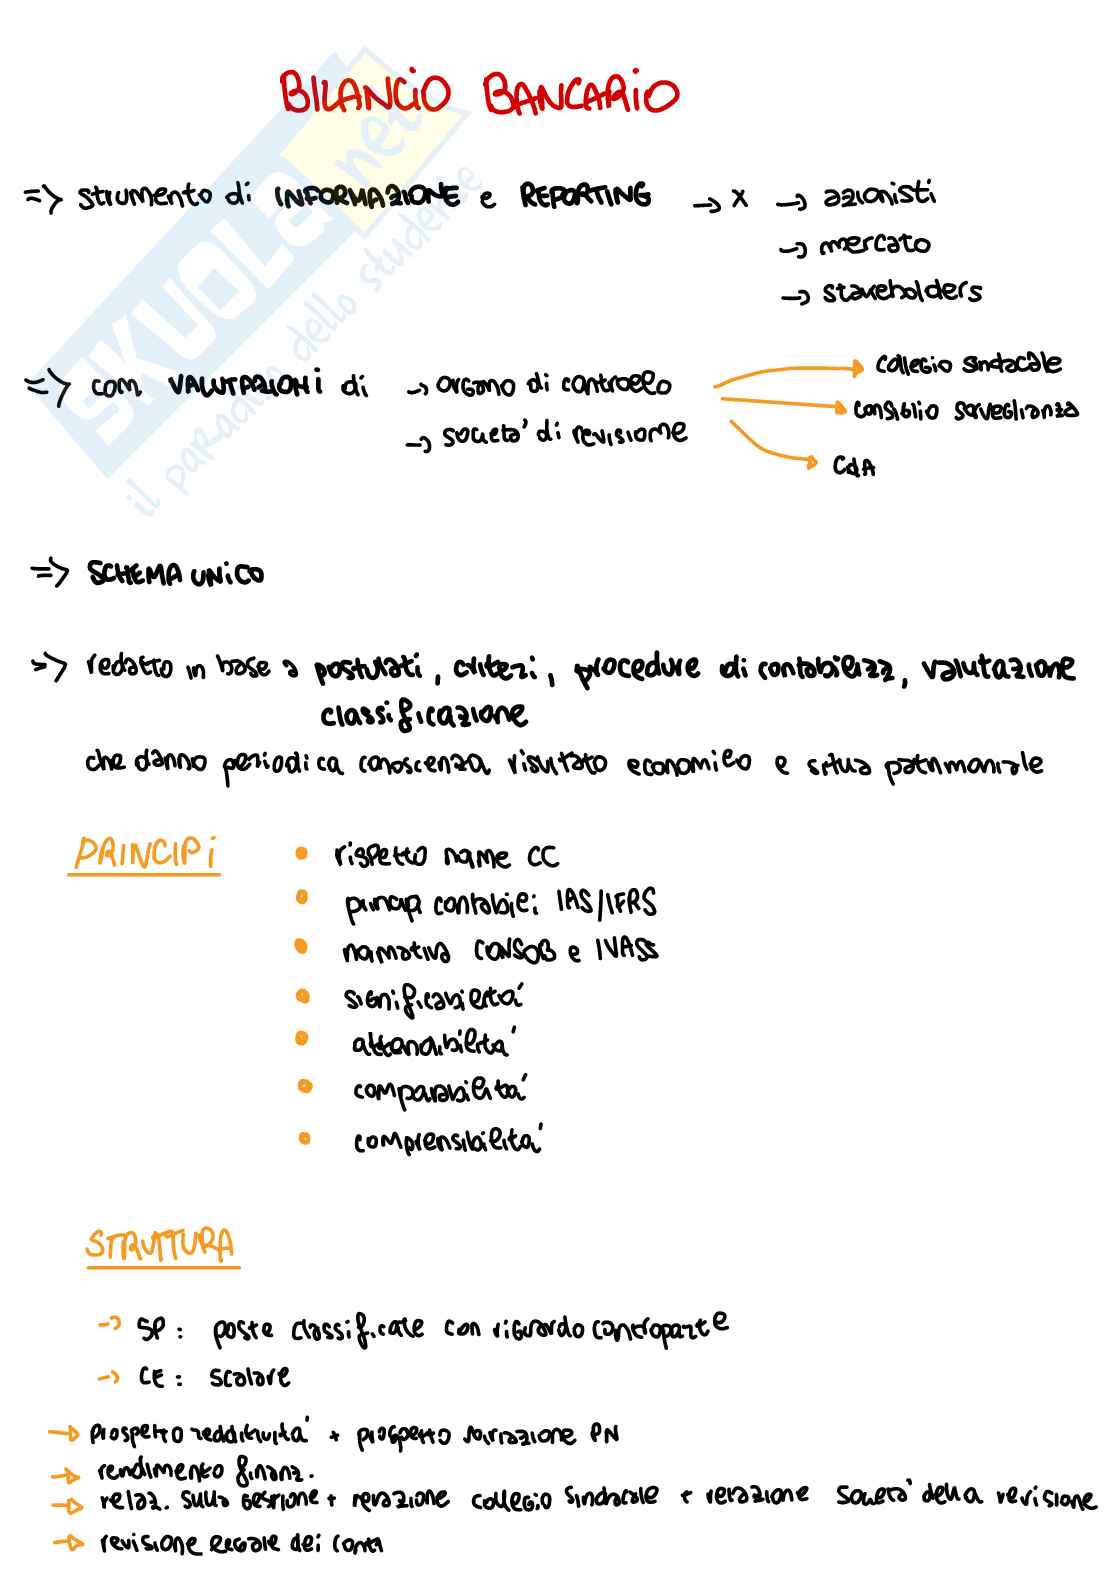 BILANCIO BANCARIO
=> strumento di INFORMAZIONE e REPORTING → x → azionisti
→ mercato
→ stakeholders
=> con VALUTAZIONI di → organo di controllo → collegio sindacale
→ consiglio sorveglianza
→ società di revisione
→ CdA
=> SCHEMA UNICO
=> redatto in base a postulati, criteri, procedure di contabilizz, valutazione
classificazione
che danno periodica conoscenza risultato economico e situa patrimoniale
PRINCIPI
• rispetto norme CC
• principi contabili IAS/IFRS
• normativa CONSOB e IVASS
• significatività
• attendibilità
• comparabilità
• comprensibilità
STRUTTURA
→ SP: poste classificate con riguardo controparte
→ CE: scalare
→ prospetto redditività + prospetto variazione PN
→ rendimento finanz.
→ relaz. sulla gestione + relazione collegio sindacale + relazione società della revisione
→ revisione legale dei conti
SKUOLA.net
il paradiso dello studente